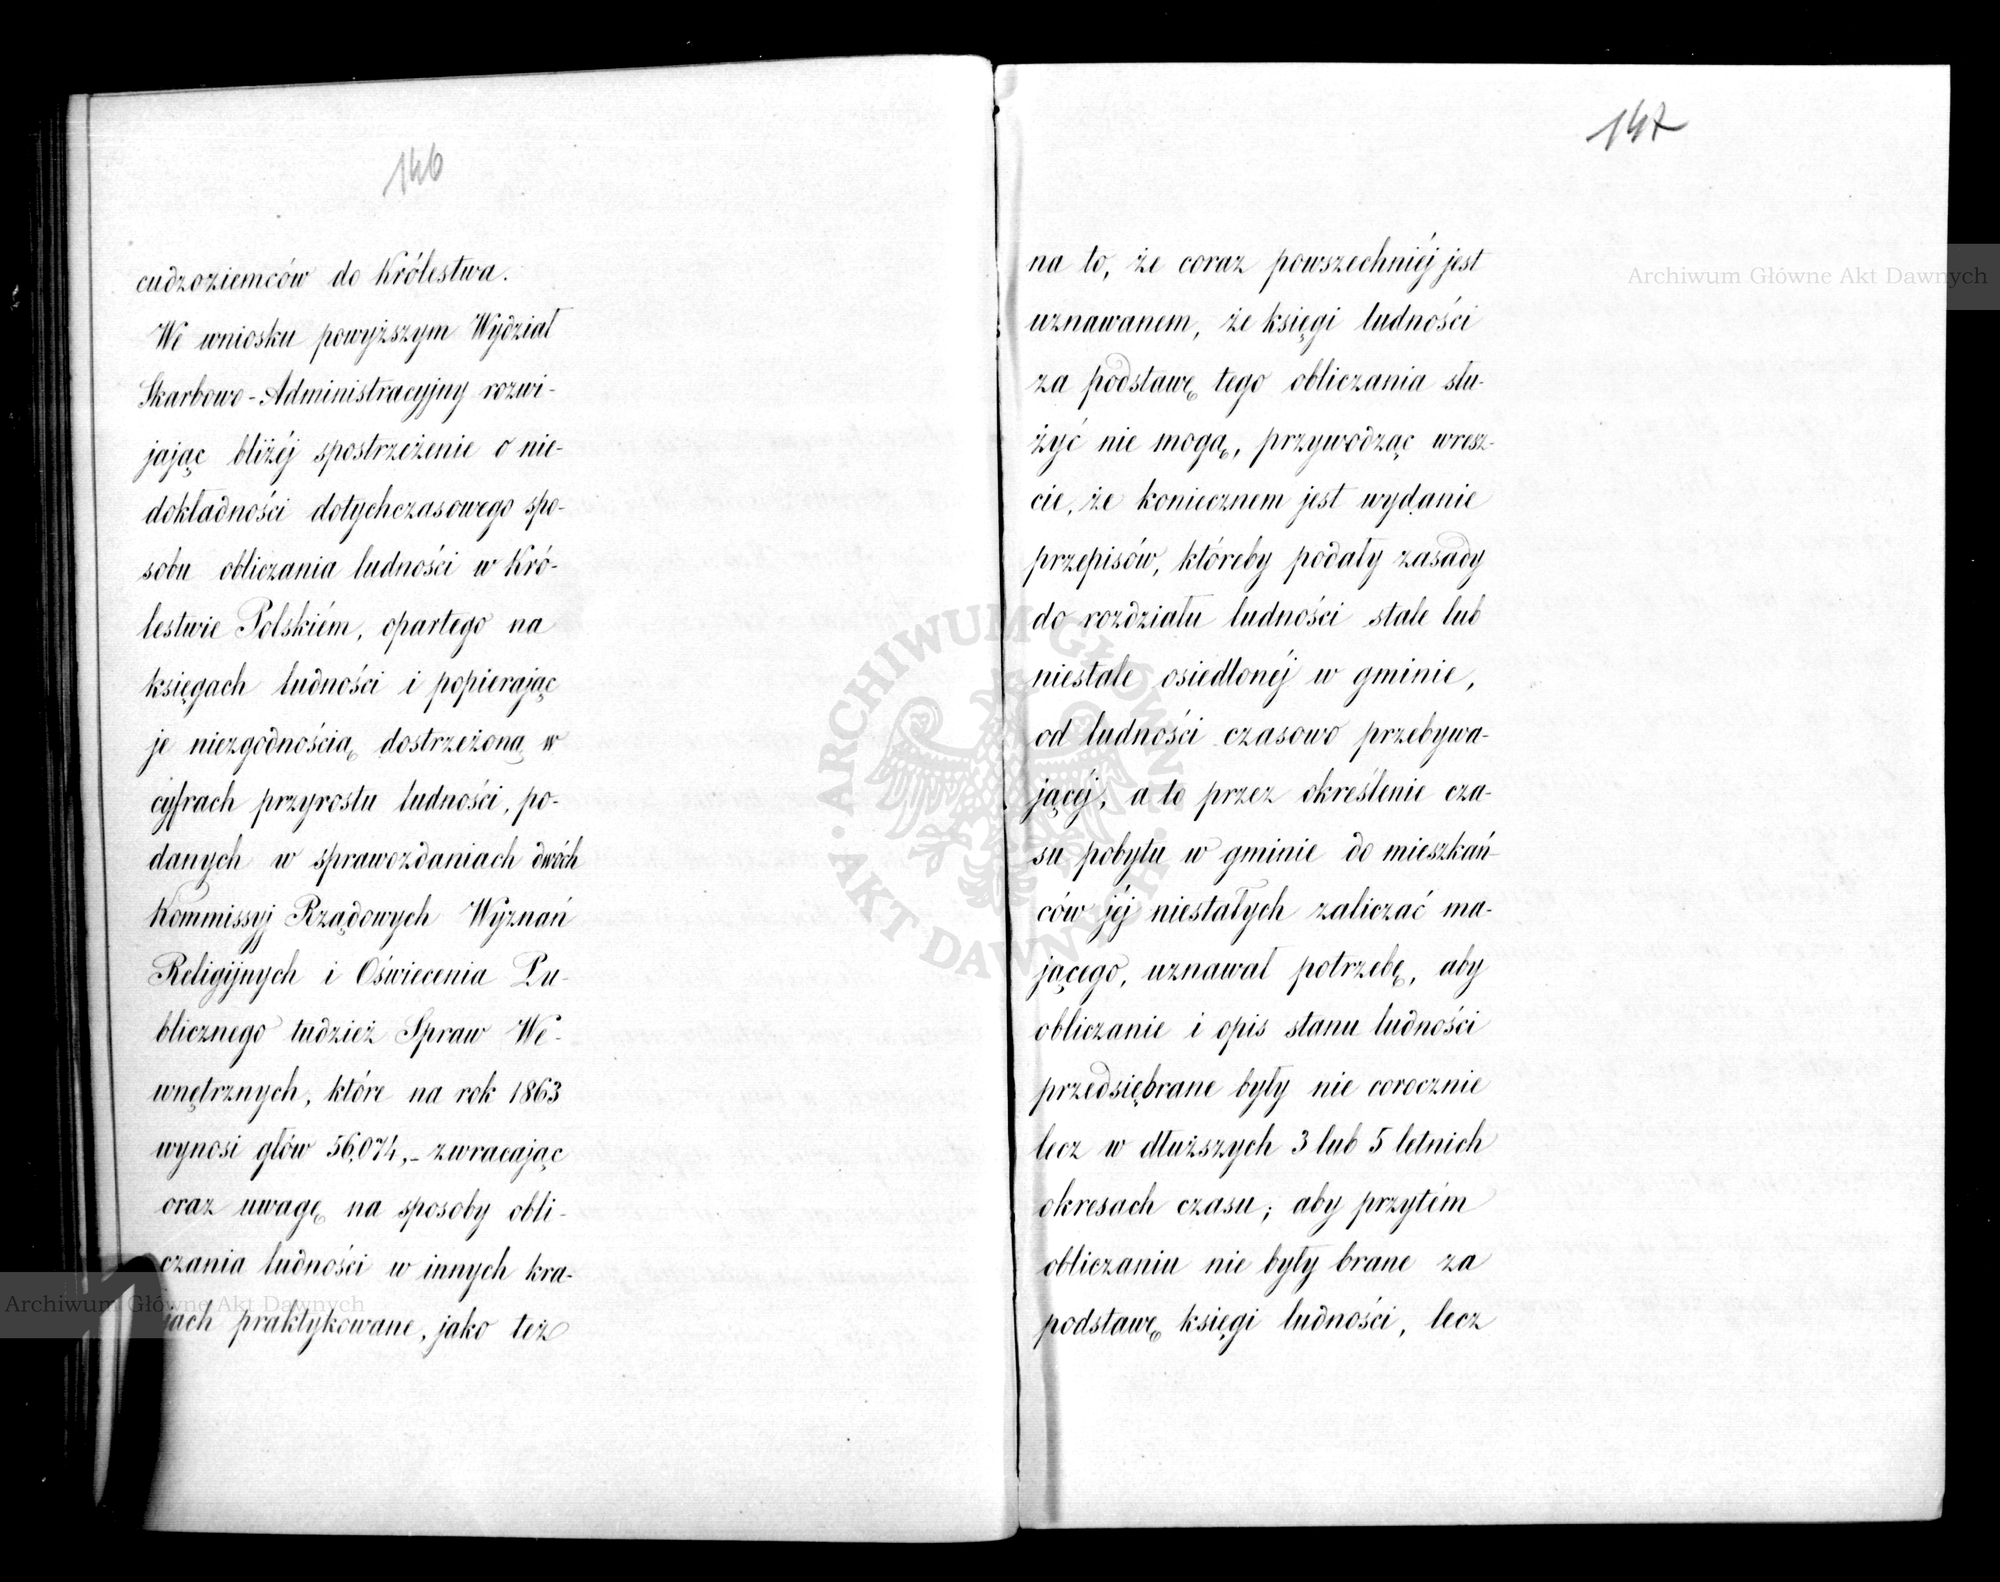 146
cudzoziemców do Królestwa.
We wniosku powyższym Wydział
Skarbowo-Administracyjny rozwi-
jając bliżéj spostrzeżenie o nie-
dokładności dotychczasowego spo-
sobu obliczania ludności w Kró-
lestwie Polskiém, opartego na
księgach ludności i popierając
je niezgodnością dostrzeżoną w
cyfrach przyrostu ludności, po-
danych w sprawozdaniach dwóch
Kommissyj Rządowych Wyznań
Religijnych i Oświecenia Pu-
blicznego tudzież Spraw We-
wnętrznych, które na rok 1863
wynosi głów 56,074,- zwracając
oraz uwagę na sposoby obli-
czania ludności w innych kra-
jach praktykowane, jako też
147
na to, że coraz powszechniéj jest
uznawanem, że księgi ludności
za podstawę tego obliczania słu-
żyć nie mogą, przywodząc wresz-
cie, że koniecznem jest wydanie
przepisów, któreby podały zasady
do rozdziału ludności stale lub
niestale osiedlonéj w gminie,
od ludności czasowo przebywa-
jącéj, a to przez określenie cza-
su pobytu w gminie do mieszkań-
ców jéj niestałych zaliczać ma-
jącego, uznawał potrzebę, aby
obliczanie i opis stanu ludności
przedsiębrane były nie corocznie
lecz w dłuższych 3 lub 5 letnich
okresach czasu; aby przytém
obliczaniu nie były brane za
podstawę księgi ludności, lecz
Archiwum Główne Akt Dawnych
Archiwum Główne Akt Dawnych
ARCHIWUM GŁÓWNE · AKT DAWNYCH ·